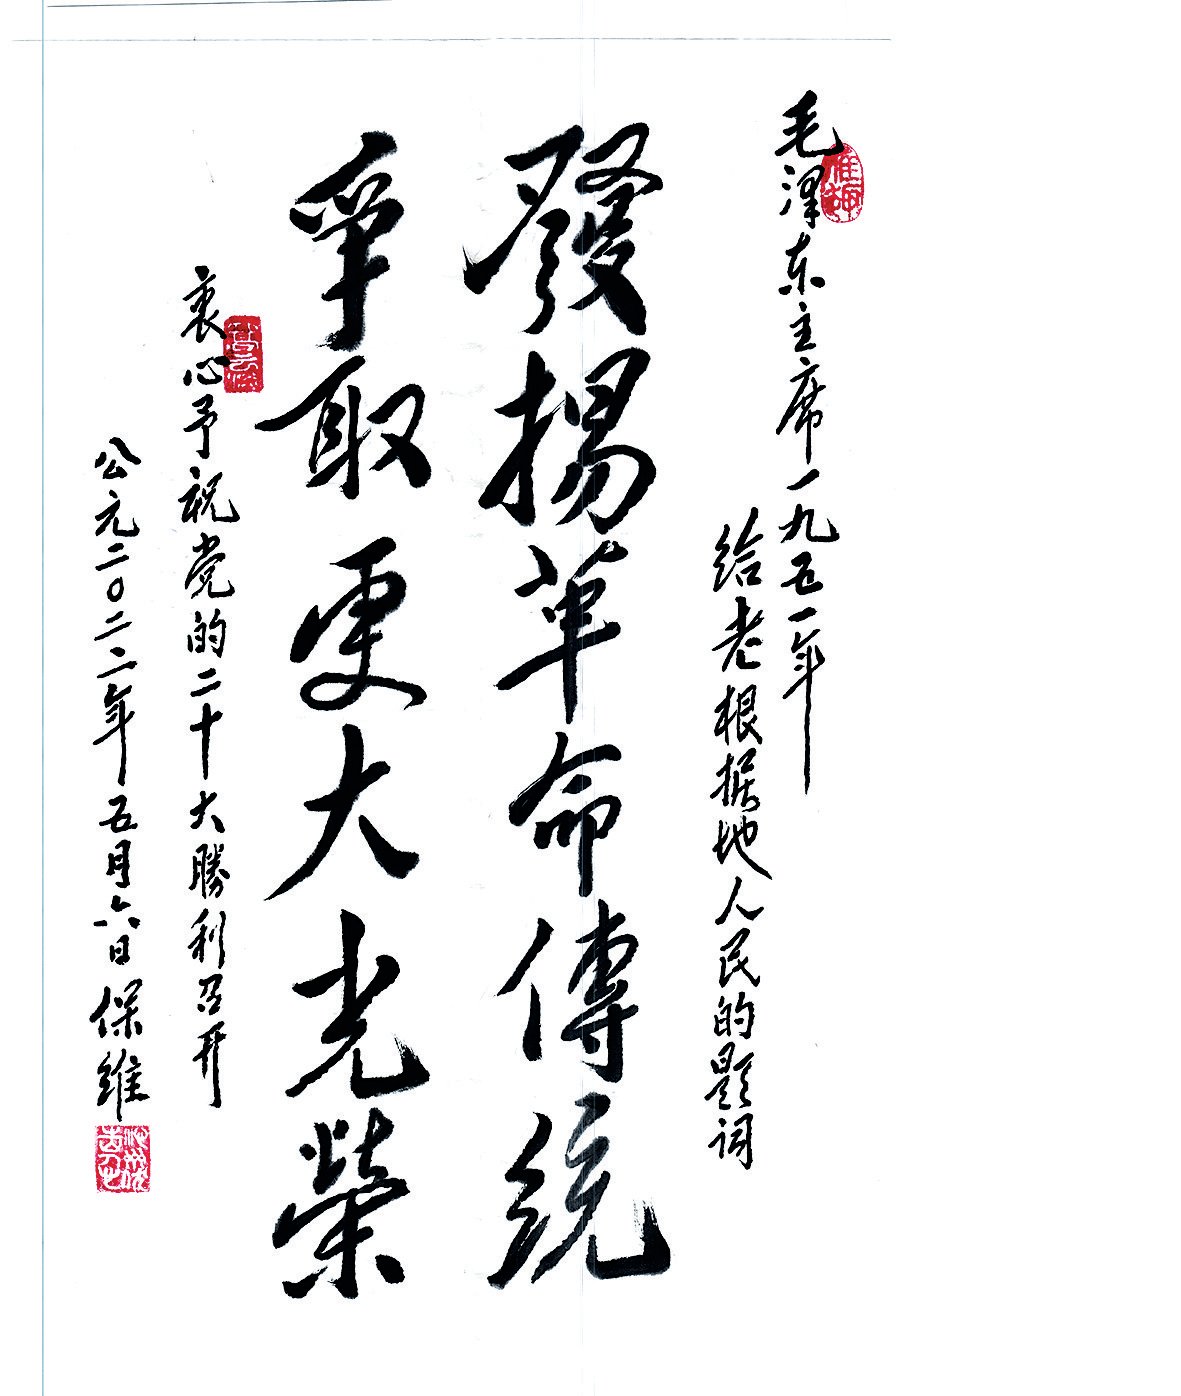 毛泽东主席一九五一年
给老根据地人民的题词
發揚革命傳統
爭取更大光榮
衷心予祝党的二十大勝利召开
公元二〇二二年五月六日保維